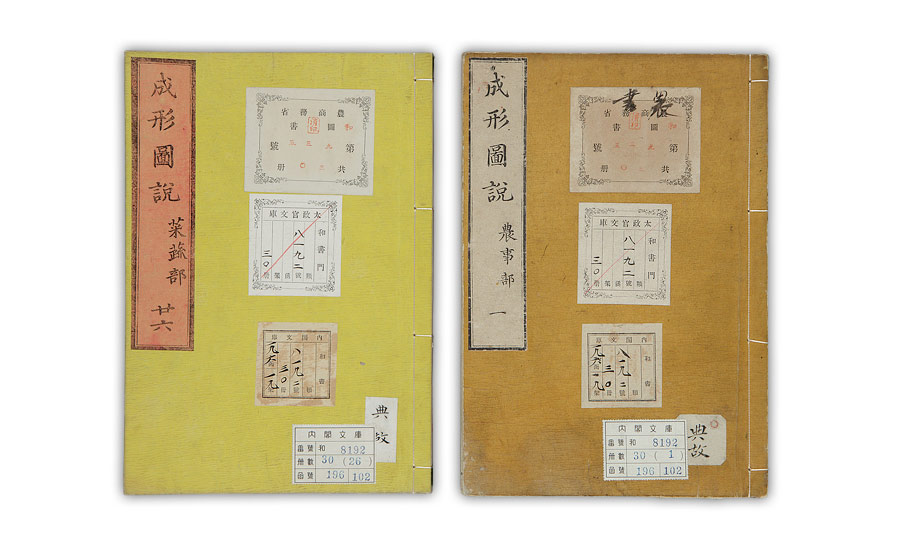 成形圖說
菜蔬部
廿六
農商務省
圖書
和
第
號
共
册
太政官文庫
和書門
八一九二
三〇
類
號
函
架
册
內閣文庫
和書
八一九二
三〇
典故
內閣文庫
番號 和 8192
冊數 30 (26)
函號 196 102
成形圖說
農事部
一
農書
農商務省
圖書
和
第
號
共
册
太政官文庫
和書門
八一九二
三〇
類
號
函
架
册
內閣文庫
和書
八一九二
三〇
典故
內閣文庫
番號 和 8192
冊數 30 (1)
函號 196 102